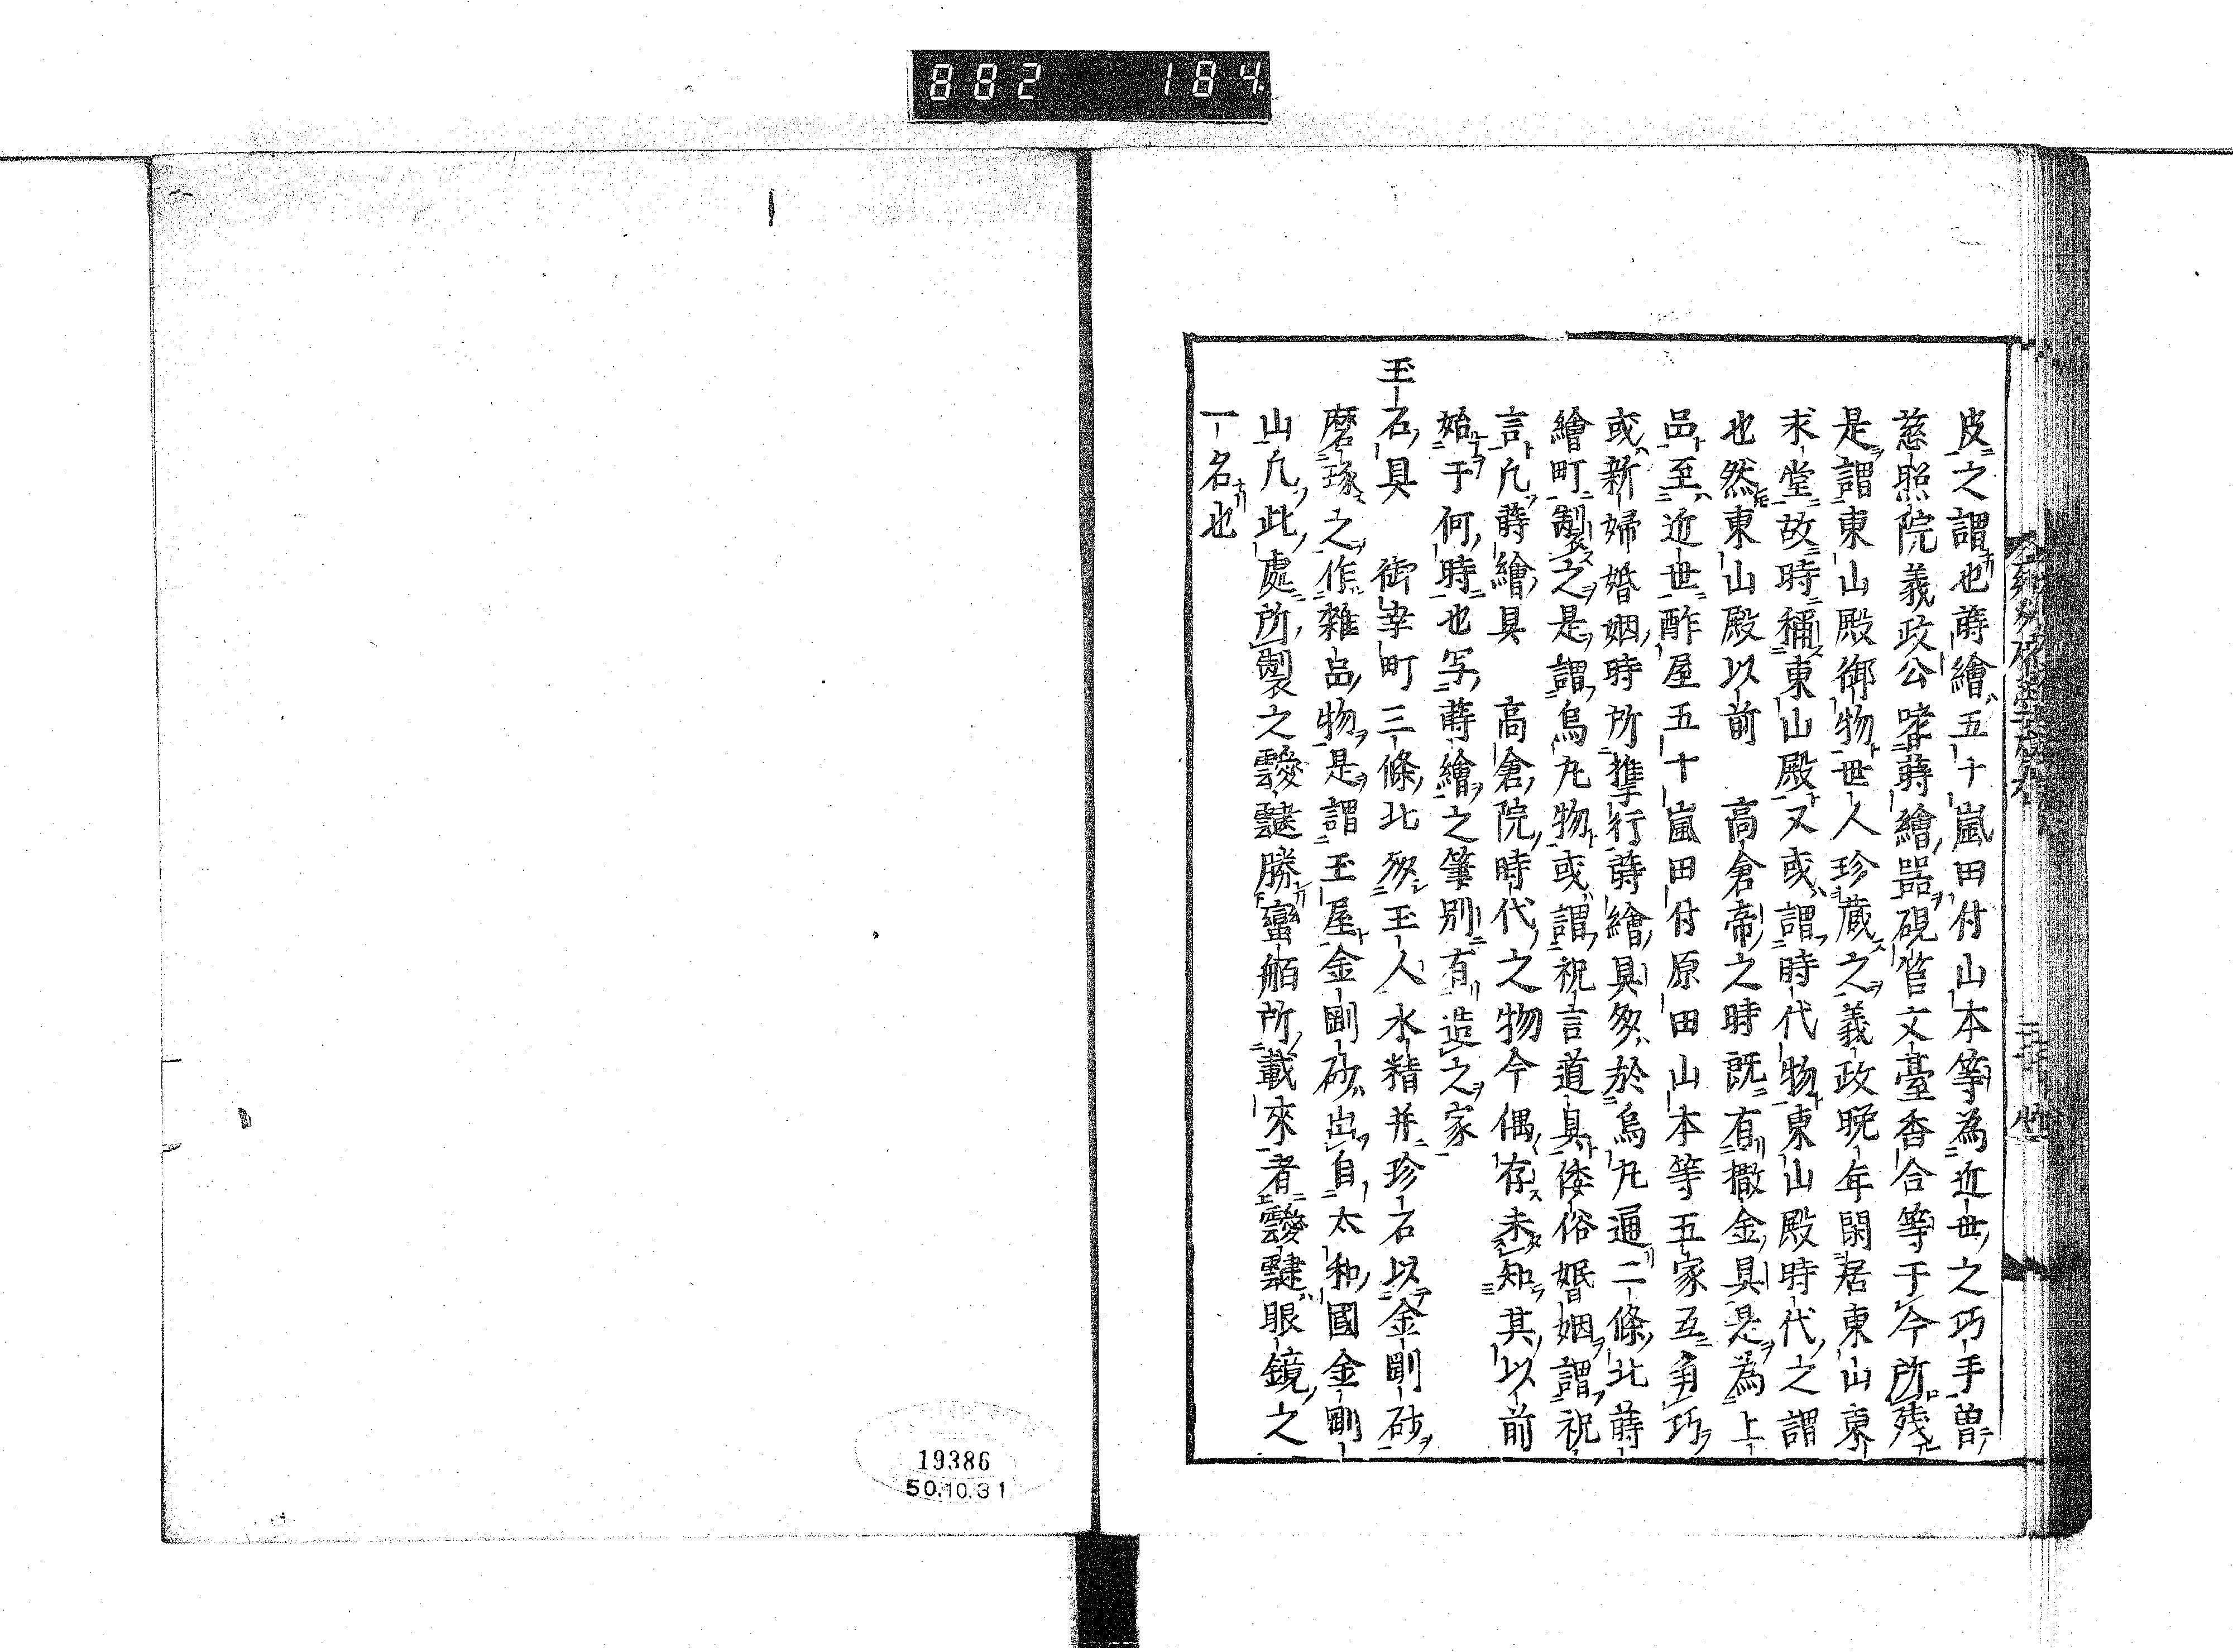 882 184
皮之謂也蒔繪五十嵐田付山本等為近世之巧手曽
慈照院義政公嗜蒔繪器硯筥文臺香合等于今所残
是謂東山殿御物世人珍蔵之義政晩年閑居東山東
求堂故時稱東山殿又或謂時代物東山殿時代之謂
也然東山殿以前　高倉帝之時既有撒金具是為上
品至近世酢屋五十嵐田付原田山本等五家五角巧
或新婦婚姻時所携行蒔繪具多於烏丸通二條北蒔
繪町製之是謂烏丸物或謂祝言道具倭俗婚姻謂祝
言凡蒔繪具　高倉院時代之物今偶存未知其以前
始于何時也写蒔繪之筆別有造之家
玉石具　御幸町三條北多玉人水精并珍石以金剛砂
磨琢之作雜品物是謂玉屋金剛砂出自太和國金剛
山凡此處所製之靉靆勝蠻舶所載來者靉靆眼鏡之
一名也
19386
50.10.31